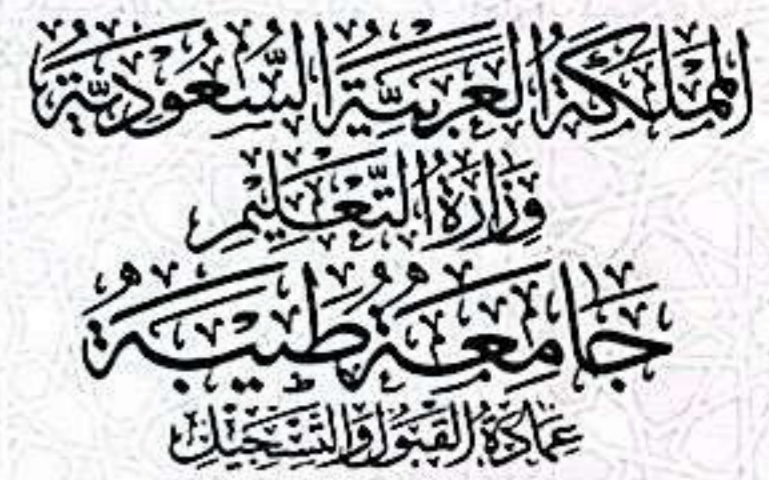 المملكة العربية السعودية
وزارة التعليم
جامعة طيبة
عمادة القبول والتسجيل